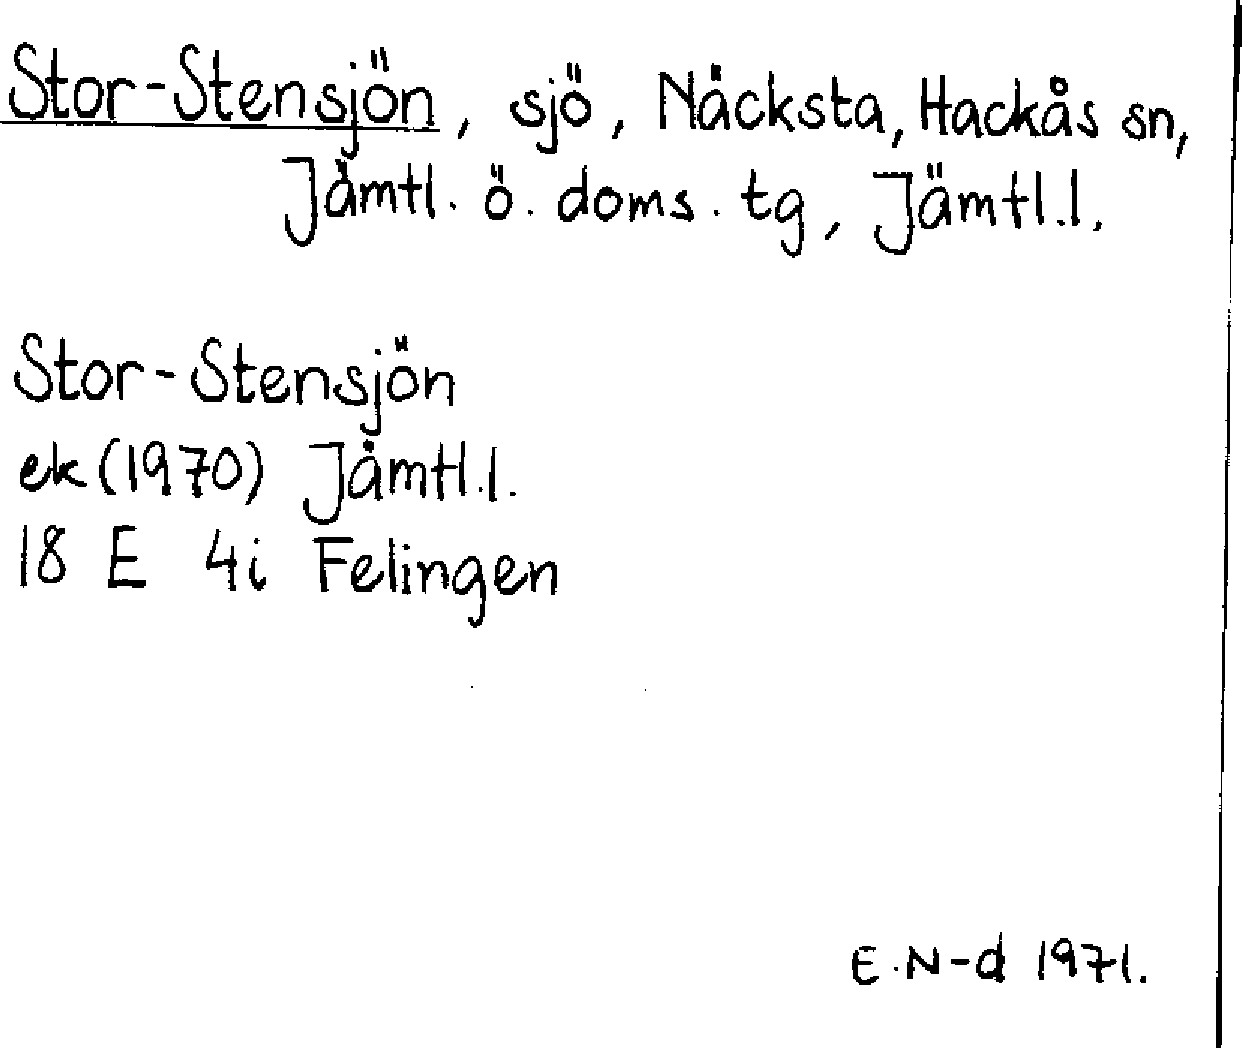 Stor-Stensjön, sjö, Näcksta, Hackås sn,
Jämtl. ö. doms. tg, Jämtl.l.
Stor-Stensjön
ek (1970) Jämtl.l.
18 E 4i Felingen
E.N-d 1971.